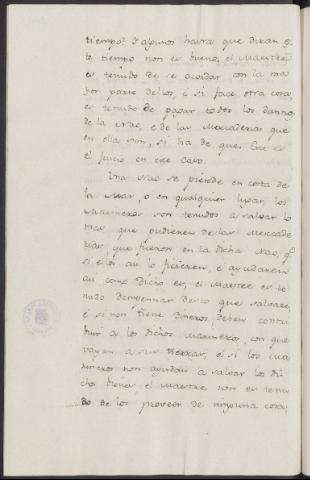 tiempo? e algunos havra que diran es
te tiempo non es bueno, el Maestre
es tenudo de se acordar con la ma
yor parte dellos, e si face otra cosa,
es tenudo de pagar todos los dannos
de la Nao, e de las Mercaderias que
en ella son, si ha de que. Este es
el juicio en este caso.
Una Nao se pierde en costa de
la Mar, o en qualquier lugar, los
Marineros son tenudos a salvar lo
mas que pudieren de las Mercade
rias, que fueron en la dicha Nao, q.e
si ellos asi lo ficieren, e ayudaren
asi como dicho es, el Maestre es te
nudo dempennar desto que salvare,
e si non tiene dineros, deben conta
a los dichos Marineros, con que
vayan a sus tierras, e si los Ma
rineros non ayudan a salvar los di
chos bienes, el Maestre non es tenu
do de los proveer de ninguna cosa,